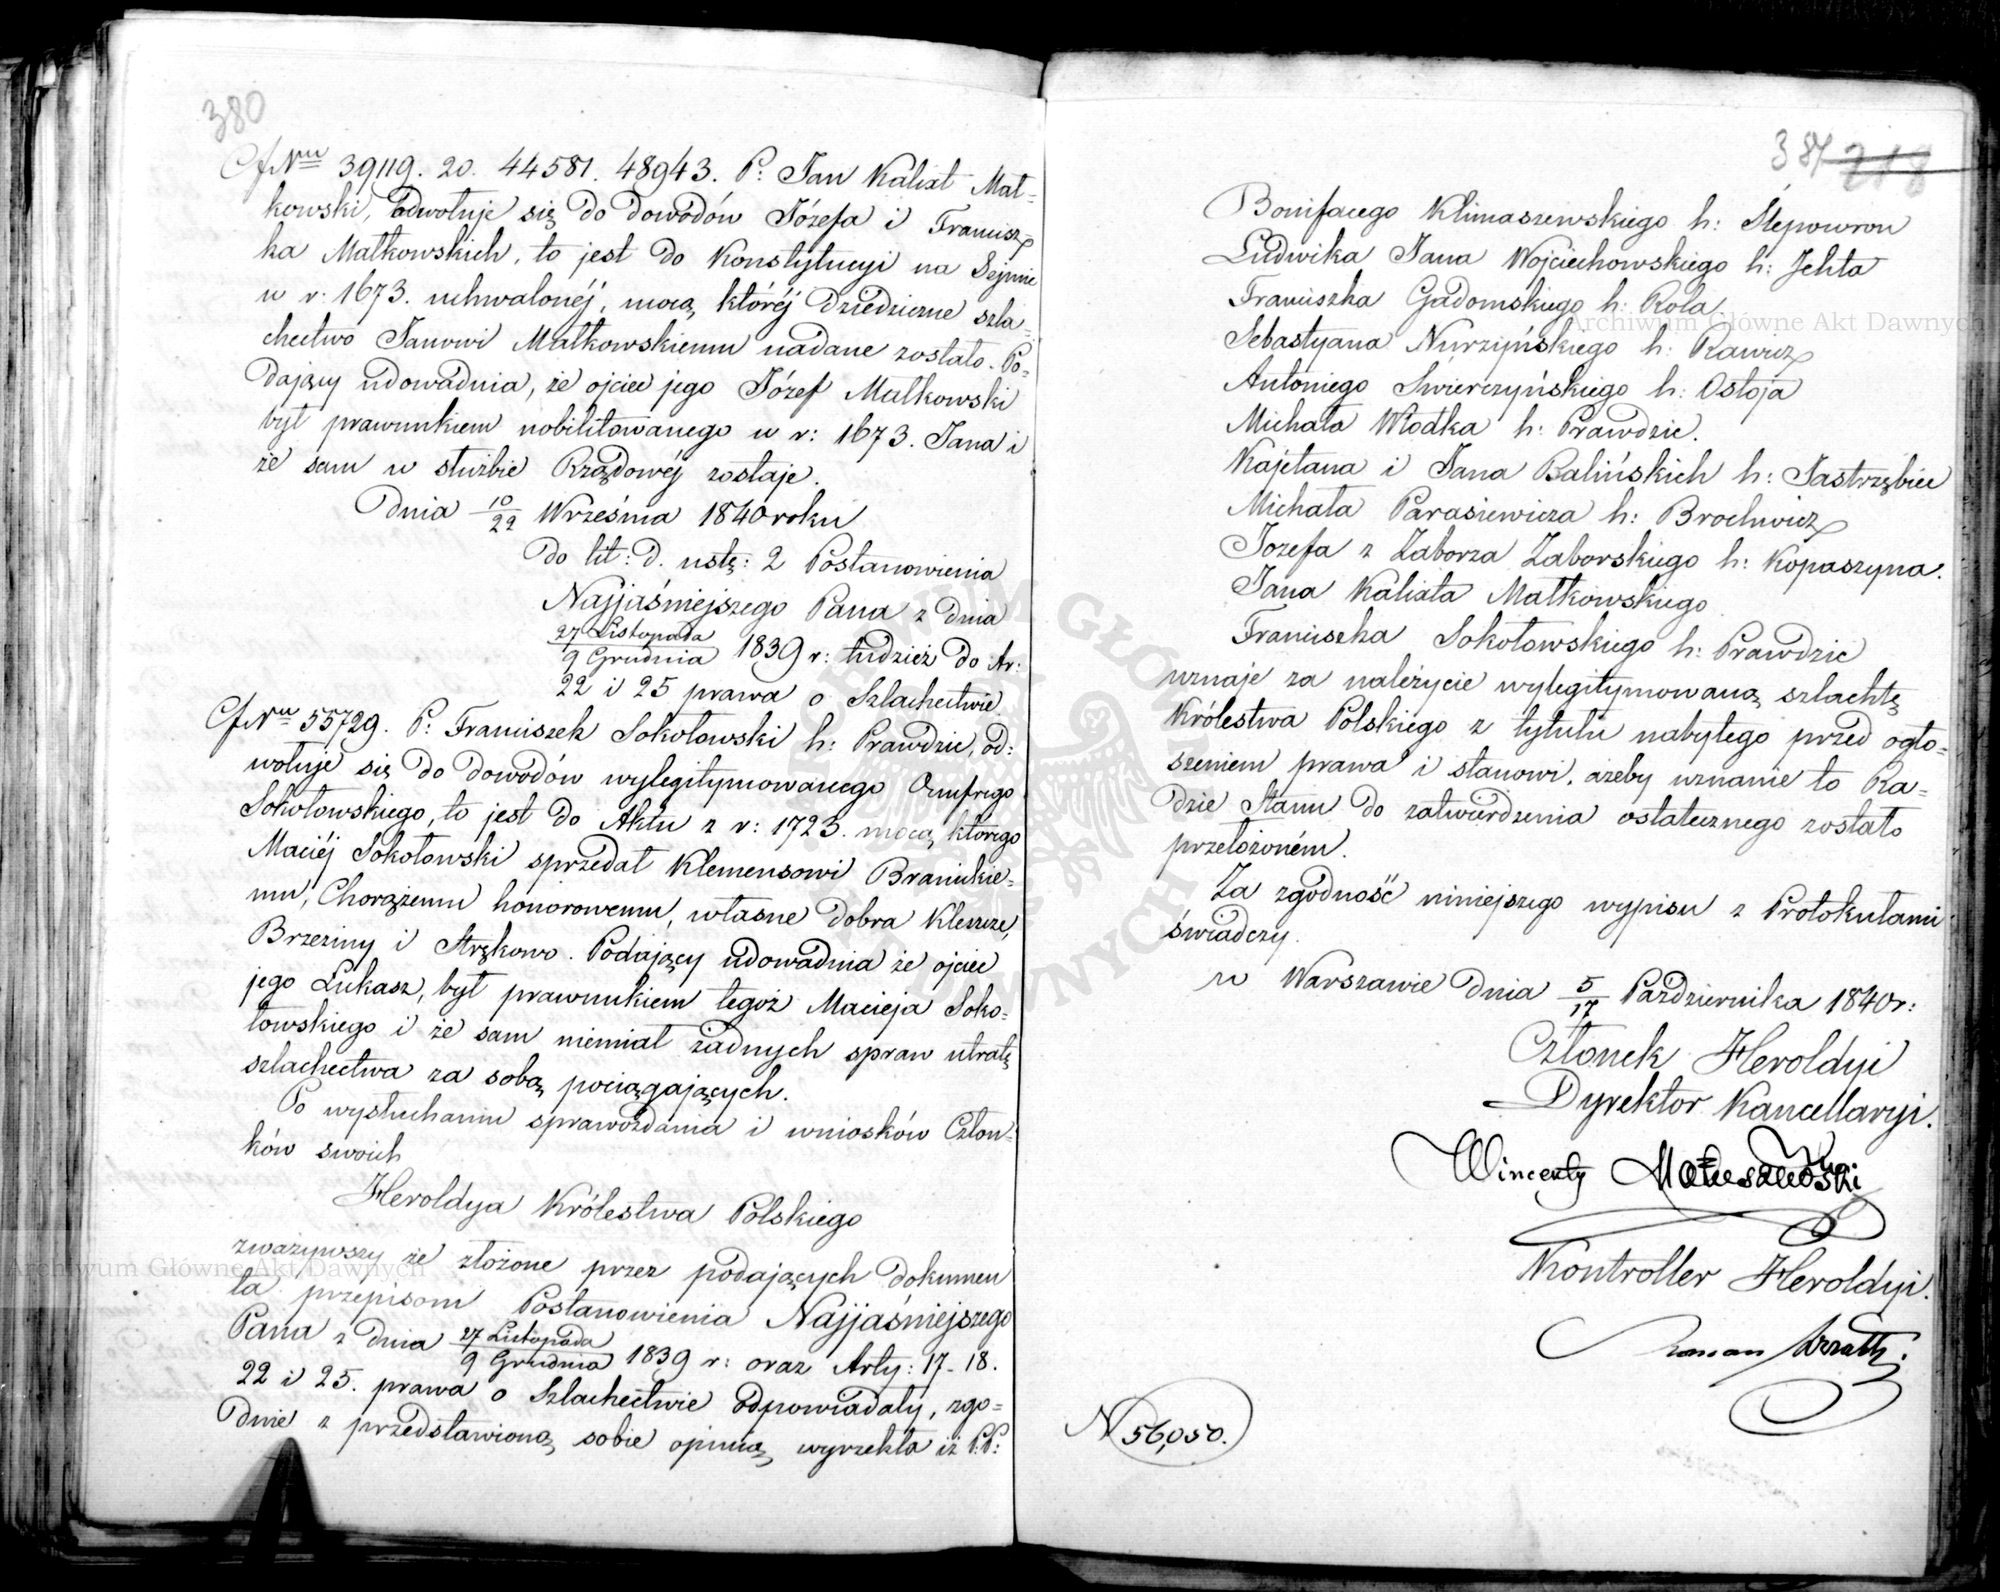 380
Nru 39119. 20. 44581. 48943. P: Jan Kalixt Mał-
kowski, odwołuje się do dowodów Józefa i Francisz-
ka Małkowskich, to jest do Konstytucyi na Sejmie
w r: 1673. uchwalonéj, mocą któréj dziedziczne szla-
chectwo Janowi Małkowskiemu nadane zostało. Po-
dający udowadnia, że ojciec jego Józef Małkowski
był prawnukiem nobilitowanego w r: 1673. Jana i
że sam w służbie Rządowéj zostaje.
Dnia 10/22 Września 1840 roku
do lit: D. ustę: 2 Postanowienia
Najjaśniejszego Pana z dnia
27 Listopada/9 Grudnia 1839 r: tudzież do Ar:
22 i 25 prawa o Szlachectwie
Nru 55729. P: Franciszek Sokołowski h: Prawdzic, od:
wołuje się do dowodów wylegitymowanego Onufrego
Sokołowskiego, to jest do Aktu z r: 1723. mocą którego
Maciéj Sokołowski sprzedał Klemensowi Branickie-
mu, Chorążemu honorowemu, własne dobra Kleszcze,
Brzeziny i Strękowo. Podający udowadnia że ojciec
jego Łukasz, był prawnukiem tegoż Macieja Soko-
łowskiego i że sam niemiał żadnych spraw utratę
szlachectwa za sobą pociągających.
Po wysłuchaniu sprawozdania i wniosków Człon-
ków swoich
Heroldya Królestwa Polskiego
zważywszy że złożone przez podających dokumen
ta przepisom Postanowienia Najjaśniejszego
Pana z dnia 27 Listopada/9 Grudnia 1839 r: oraz Arty: 17-18.
22 i 25. prawa o Szlachectwie odpowiadały, zgo-
dnie z przedstawioną sobie opinią, wyrzekła iż P.P:
381 218
Bonifacego Klimaszewskiego h: Ślepowron
Ludwika Jana Wojciechowskiego h: Jelita
Franciszka Gadomskiego h: Rola
Sebastyana Nurzyńskiego h: Rawicz
Antoniego Świerczyńskiego h: Ostoja
Michała Włodka h: Prawdzic.
Kajetana i Jana Balińskich h: Jastrzębiec
Michała Parasiewicza h: Brochwicz
Józefa z Zaborza Zaborskiego h: Kopaszyna.
Jana Kalixta Małkowskiego
Franciszka Sokołowskiego h: Prawdzic
uznaje za należycie wylegitymowaną szlachtę
Królestwa Polskiego z tytułu nabytego przed ogło-
szeniem prawa i stanowi, ażeby uznanie to Ra-
dzie Stanu do zatwierdzenia ostatecznego zostało
przełożoném.
Za zgodność niniejszego wypisu z Protokułami
świadczy.
w Warszawie dnia 5/17 Października 1840 r:
Członek Heroldyi
Dyrektor Kancellaryi.
Wincenty Matuszewski
Kontroller Heroldyi.
Roman
N 56,050.
Archiwum Główne Akt Dawnych
Archiwum Główne Akt Dawnych
ARCHIWUM GŁÓWNE AKT DAWNYCH